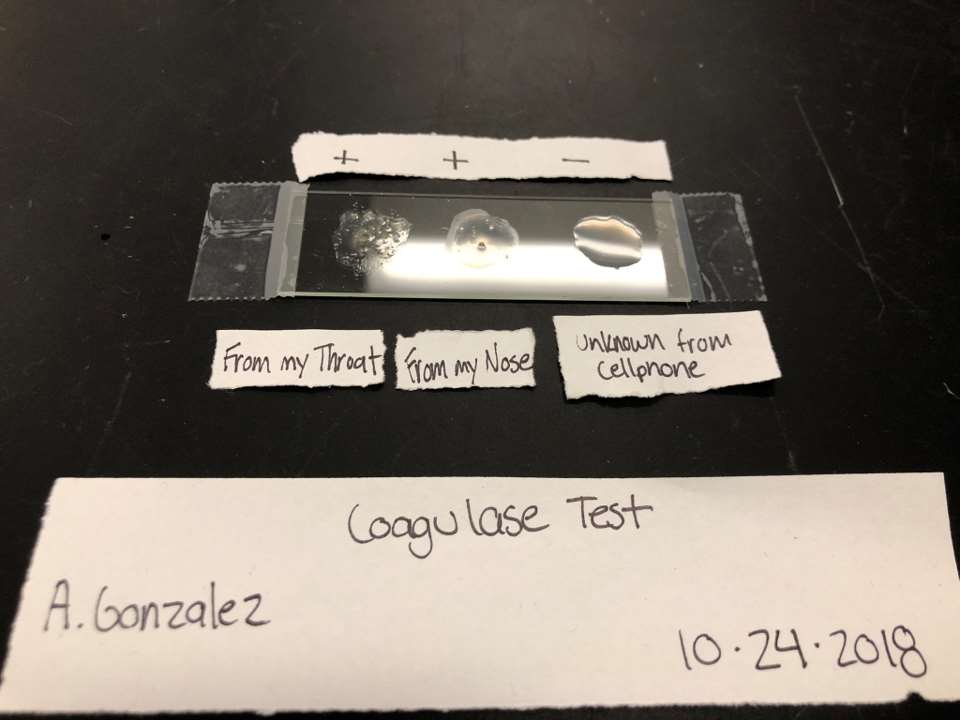 + + -
From my Throat
From my Nose
unknown from
cellphone
Coagulase Test
A. Gonzalez
10.24.2018